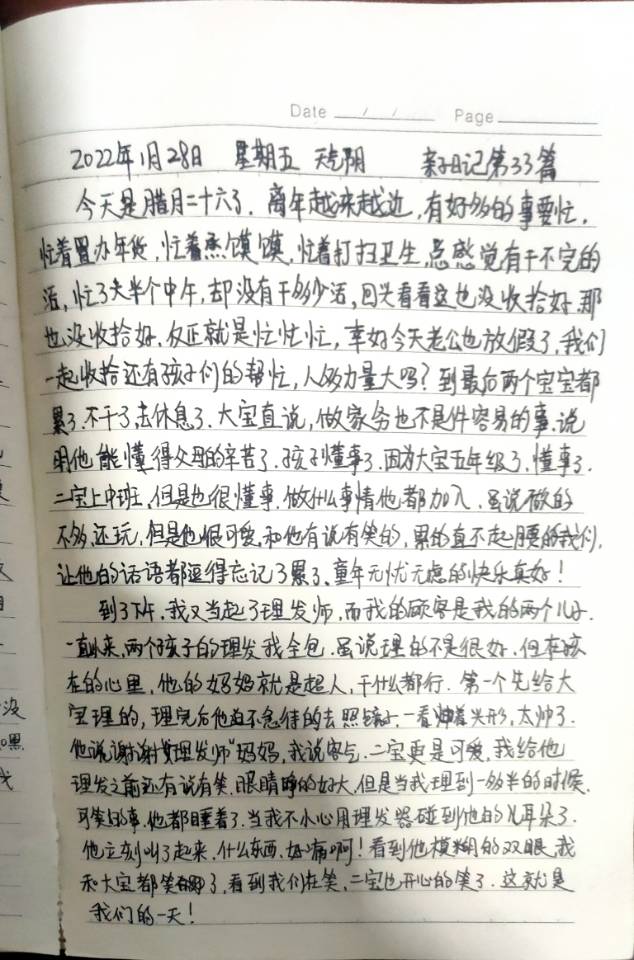 Date / / Page
2022年1月28日 星期五 天气阴 亲子日记第33篇
今天是腊月二十六了，离年越来越近，有好多的事要忙，
忙着置办年货，忙着蒸馍馍，忙着打扫卫生，总感觉有干不完的
活，忙了大半个中午，却没有干多少活，回头看看这也没收拾好，那
也没收拾好，反正就是忙忙忙，幸好今天老公也放假了，我们
一起收拾还有孩子们的帮忙，人多力量大吗？到最后两个宝宝都
累了，不干了去休息了，大宝直说，做家务也不是件容易的事，说
明他能懂得父母的辛苦了，孩子懂事了，因为大宝五年级了，懂事了，
二宝上中班，但是也很懂事，做什么事情他都加入，虽说做的
不多，还玩，但是他很可爱，和他有说有笑的，累的直不起腰的我们，
让他的话语都逗得忘记了累了，童年无忧无虑的快乐真好！
到了下午，我又当起了理发师，而我的顾客是我的两个儿子，
一直以来，两个孩子的理发我全包，虽说理的不是很好，但在孩
在的心里，他的妈妈就是超人，干什么都行，第一个先给大
宝理的，理完后他迫不急待的去照镜子，一看帅着头形，太帅了，
他说谢谢"理发师"妈妈，我说客气，二宝更是可爱，我给他
理发之前还有说有笑，眼睛睁的好大，但是当我理到一多半的时候，
可笑的事，他都睡着了，当我不小心用理发器碰到他的儿耳朵了，
他立刻叫了起来，什么东西，好痛啊！看到他模糊的双眼，我
和大宝都笑了，看到我们在笑，二宝也开心的笑了，这就是
我们的一天！